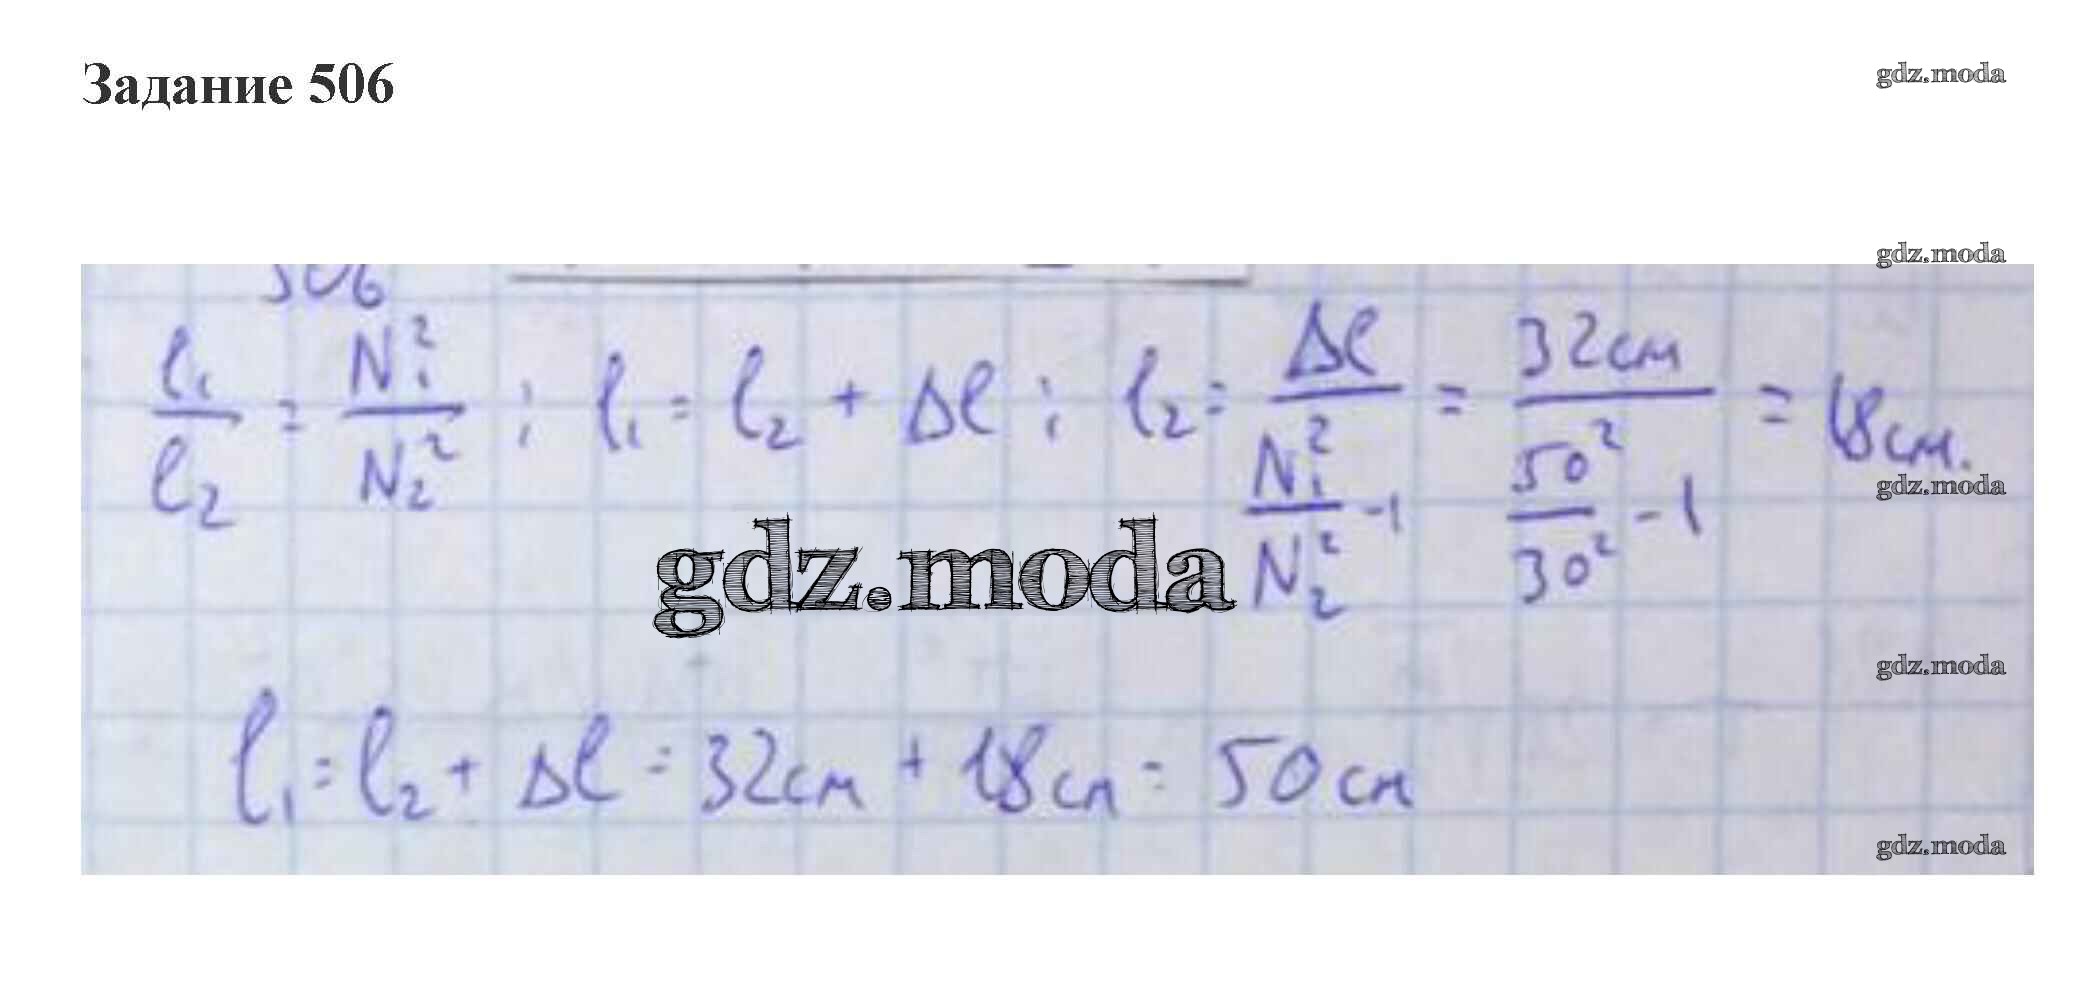 Задание 506
gdz.moda
gdz.moda
506
l₁/l₂ = N₁²/N₂² ; l₁ = l₂ + Δl ; l₂ = Δl/(N₁²/N₂² - 1) = 32см/(50²/30² - 1) = 18см.
gdz.moda
gdz.moda
gdz.moda
l₁ = l₂ + Δl = 32см + 18см = 50см
gdz.moda